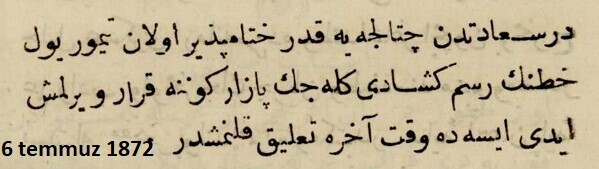 درسعادتدن چتالجه يه قدر ختامپذير اولان تيمور يول
خطنك رسم كشادى كله جك پازار كوننه قرار ويرلمش
ايدى ايسه ده وقت آخره تعليق قلنمشدر
6 temmuz 1872